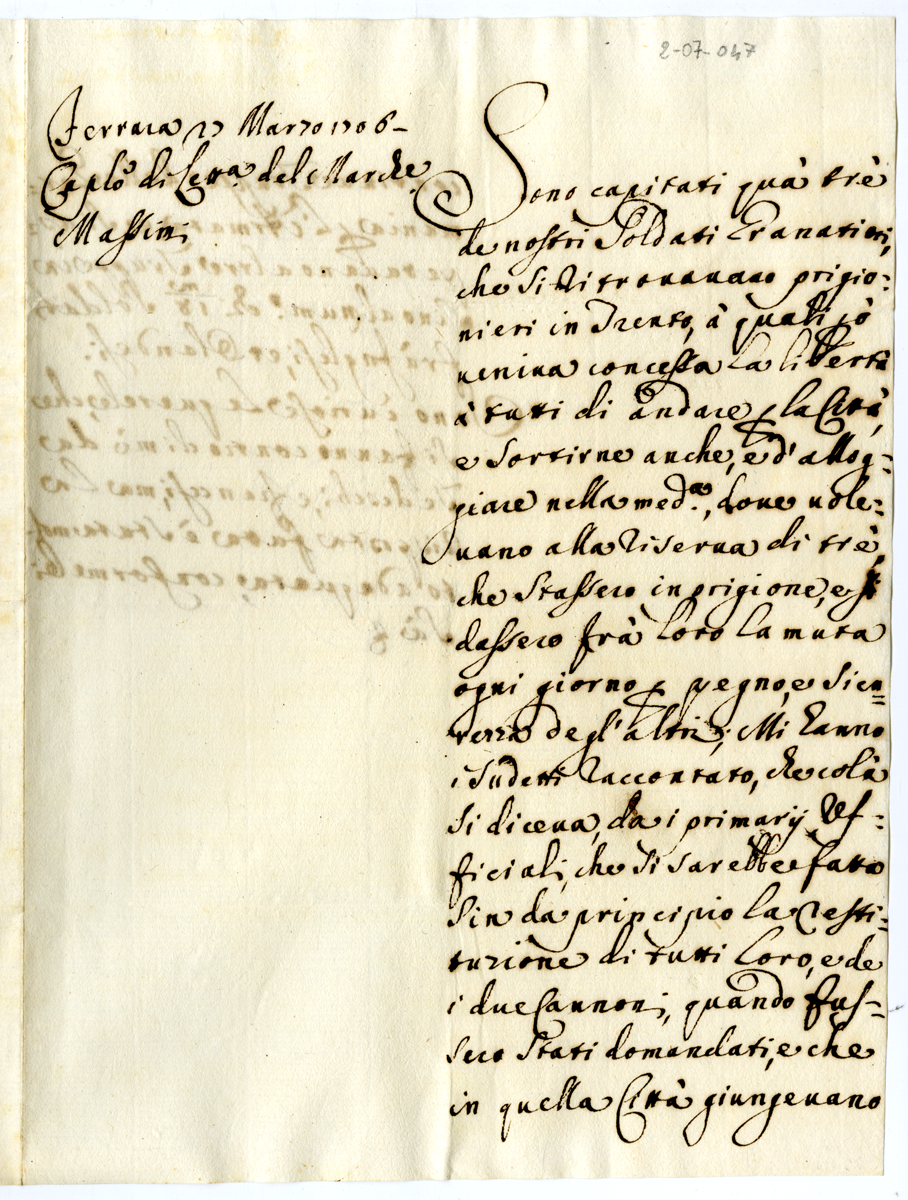 2-07-047
Ferrara 27 Marzo 1706-
Caplo di Letta. del Marche.
Massimi
Sono capitati quà trè
de nostri Soldati Granatieri,
che si ritrouauano prigio:
nieri in Trento, à quali p̱ò
ueniua concessa la libertà
à tutti di andare p̱ la Città,
e sortirne anche, e d'allog:
giare nella meda., doue uole:
uano alla riserua di trè,
che stassero in prigione, e si
dassero frà loro la muta
ogni giorno p̱ pegno, e sicu=
rezza degl'altri; Mi hanno
i sudetti raccontato, che colà
si diceua, da i primarij Uf:
ficiali, che si sarebbe fatta
sin da principio la resti:
tuzione di tutti loro, e de
i due Cannoni, quando fus=
sero stati domandati, e che
in quella Città giungeuano